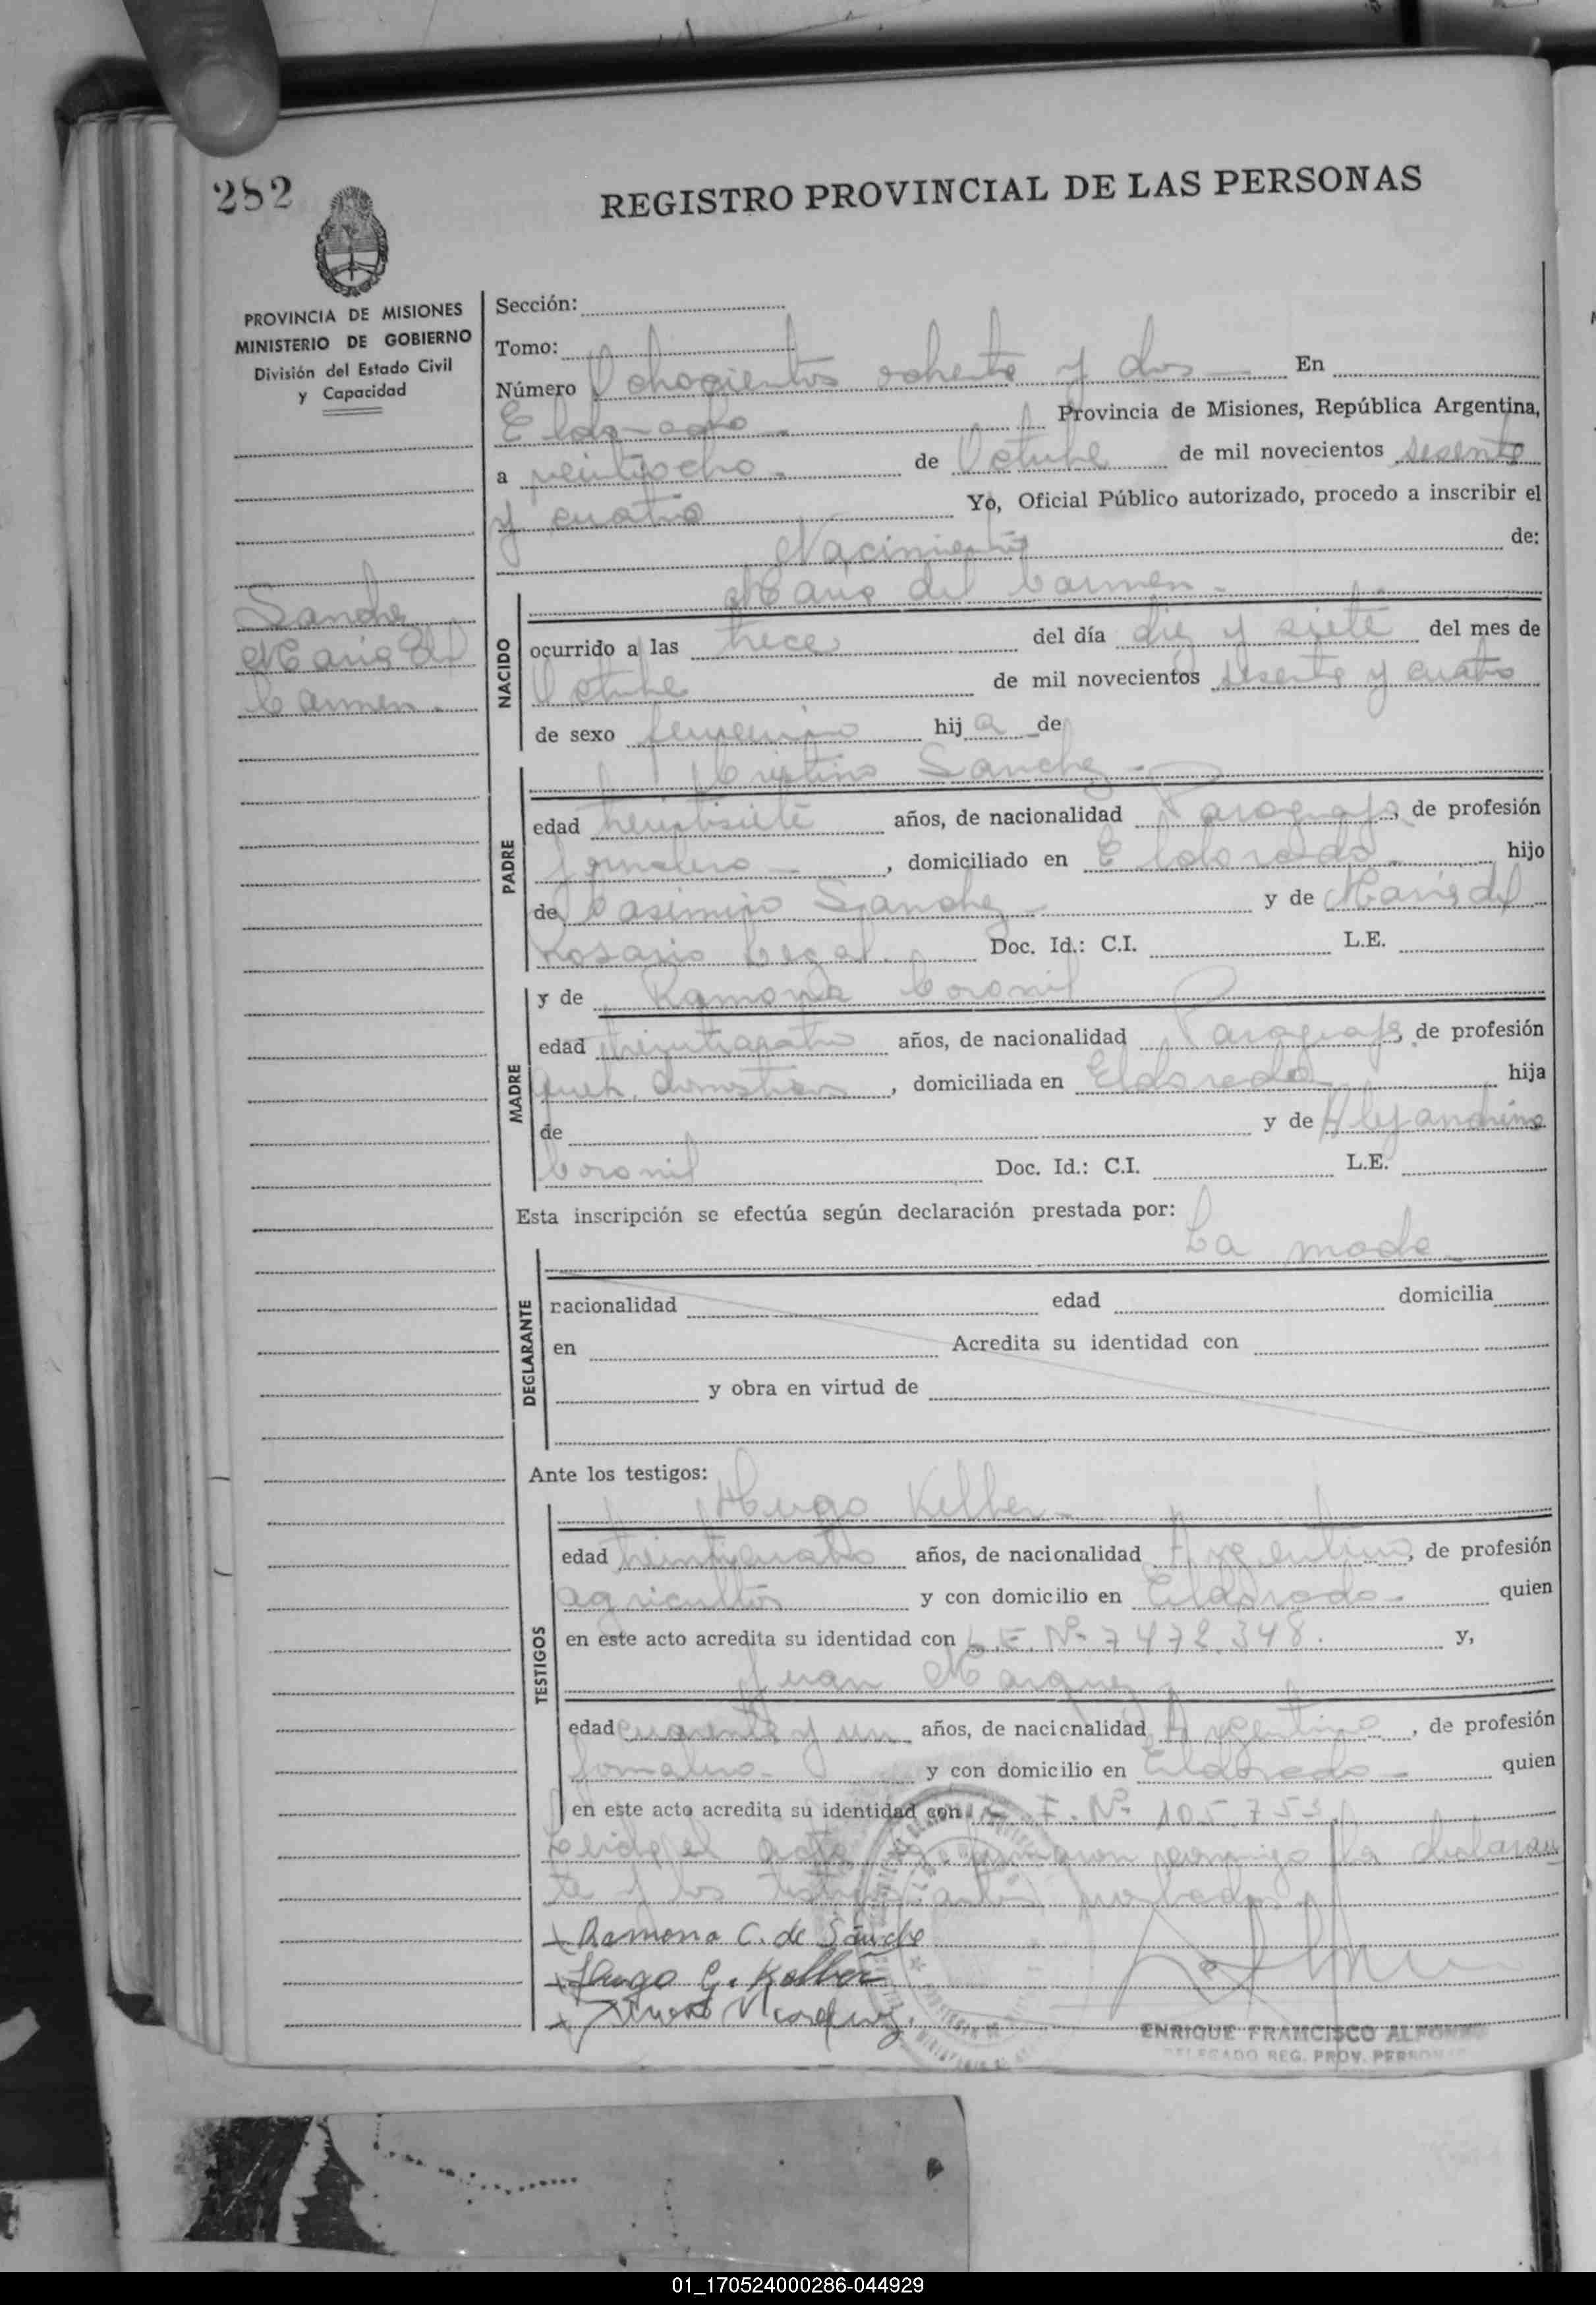 282
REGISTRO PROVINCIAL DE LAS PERSONAS
PROVINCIA DE MISIONES
MINISTERIO DE GOBIERNO
División del Estado Civil
y Capacidad
Sanchez
Maria del
Carmen.
Sección:
Tomo:
Número Ochocientos ochenta y dos En
Eldorado. Provincia de Misiones, República Argentina,
a veintiocho. de Octubre de mil novecientos sesenta
y cuatro Yo, Oficial Público autorizado, procedo a inscribir el
Nacimiento de:
Maria del Carmen.
NACIDO
ocurrido a las trece del día diez y siete del mes de
Octubre de mil novecientos sesenta y cuatro
de sexo femenino hij a de
Cristino Sanchez
PADRE
edad treintisiete años, de nacionalidad Paraguaya, de profesión
jornalero , domiciliado en Eldorado. hijo
de Casimiro Sanchez y de Maria del
Rosario Doc. Id.: C.I. L.E.
MADRE
y de Ramona Coronil
edad años, de nacionalidad Paraguaya, de profesión
domesticos, domiciliada en Eldorado hija
de y de Alejandrina
Coronil Doc. Id.: C.I. L.E.
Esta inscripción se efectúa según declaración prestada por:
La madre
DECLARANTE
nacionalidad edad domicilia
en Acredita su identidad con
y obra en virtud de
Ante los testigos:
Hugo Kelber
TESTIGOS
edad treinticuatro años, de nacionalidad Argentino, de profesión
agricultor y con domicilio en Eldorado. quien
en este acto acredita su identidad con L.E. Nº 7472.348. y,
Juan Marquez
edad cuarenta y un años, de nacionalidad Argentino, de profesión
jornalero y con domicilio en Eldorado quien
en este acto acredita su identidad con Nº 105.753
Leida el acta la firmaron conmigo la declaran
te y los testigos antes nombrados
Ramona C. de Sánche
Hugo G. Kelber
Marquez.
ENRIQUE FRANCISCO ALFONSO
DELEGADO REG. PROV. PERSONAS
01_170524000286-044929